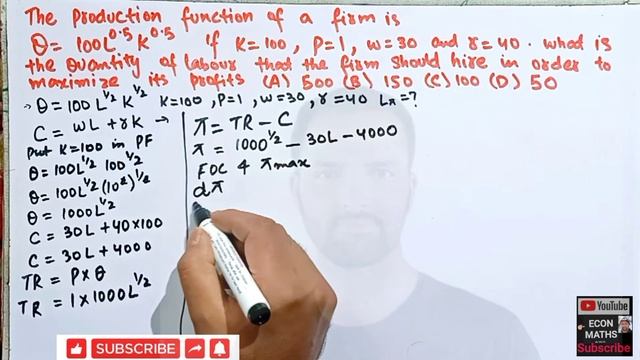 The Production function of a firm is
Q = 100L^0.5 K^0.5 if K=100, P=1, w=30 and r=40. what is
the Quantity of labour that the firm should hire in order to
maximize its profits (A) 500 (B) 150 (C) 100 (D) 50
→ Q = 100 L^1/2 K^1/2 K=100, P=1, w=30, r=40 Lπ=?
C = wL + rK →
Put K=100 in PF
Q = 100L^1/2 100^1/2
Q = 100L^1/2 (10^2)^1/2
Q = 1000L^1/2
C = 30L + 40×100
C = 30L + 4000
TR = P×Q
TR = 1×1000L^1/2
π = TR − C
π = 1000^1/2 − 30L − 4000
FOC 4 πmax
dπ
SUBSCRIBE
YouTube
ECON
MATHS
Subscribe